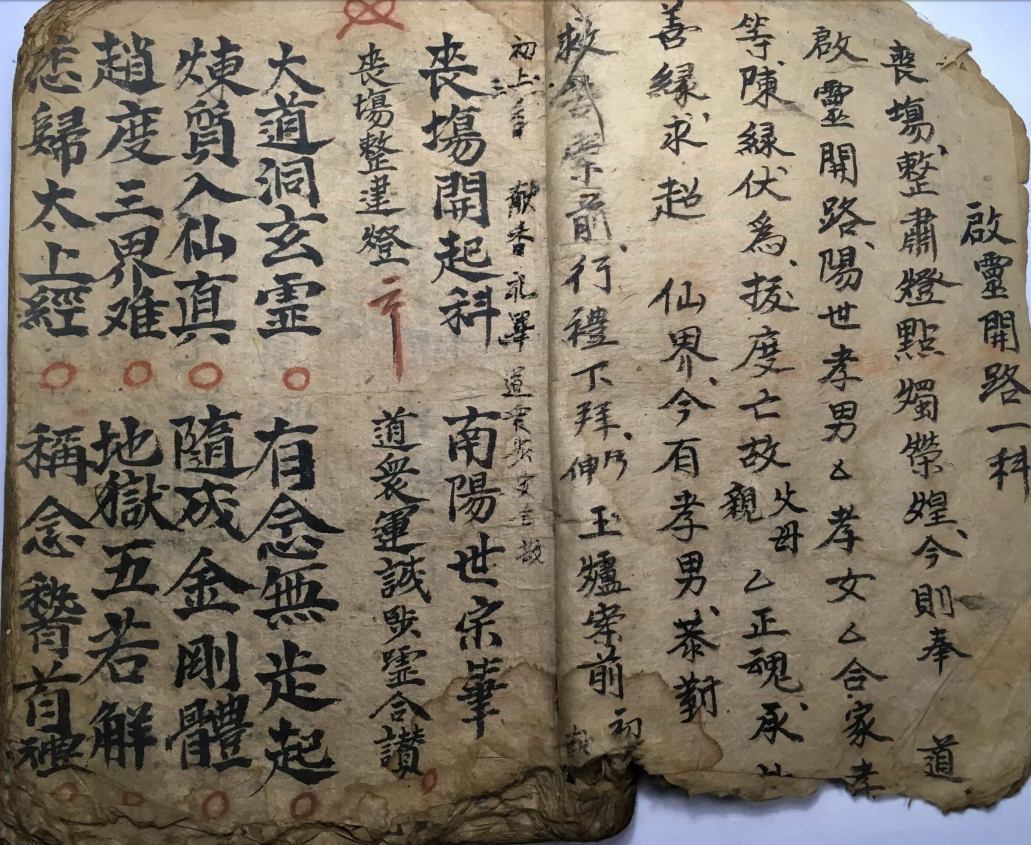 啟靈開路一科
喪塲整肅燈點燭熒煌今則奉 道
啟靈開路陽世孝男厶孝女厶合家孝
等陳緣伏為拔度亡故父母親乙正魂承
善緣求超 仙界今有孝男恭對
救苦案前行禮下拜伸 玉爐案前 初
初上香 三献香礼畢 道眾
喪塲開起科 南陽世宗筆
喪塲整建燈 道眾運誠步靈合讚
大道洞玄靈 有念無𰋀起
煉質入仙真 隨成金剛體
趙度三界难 地獄五若解
悉歸太上經 稱念稽首禮